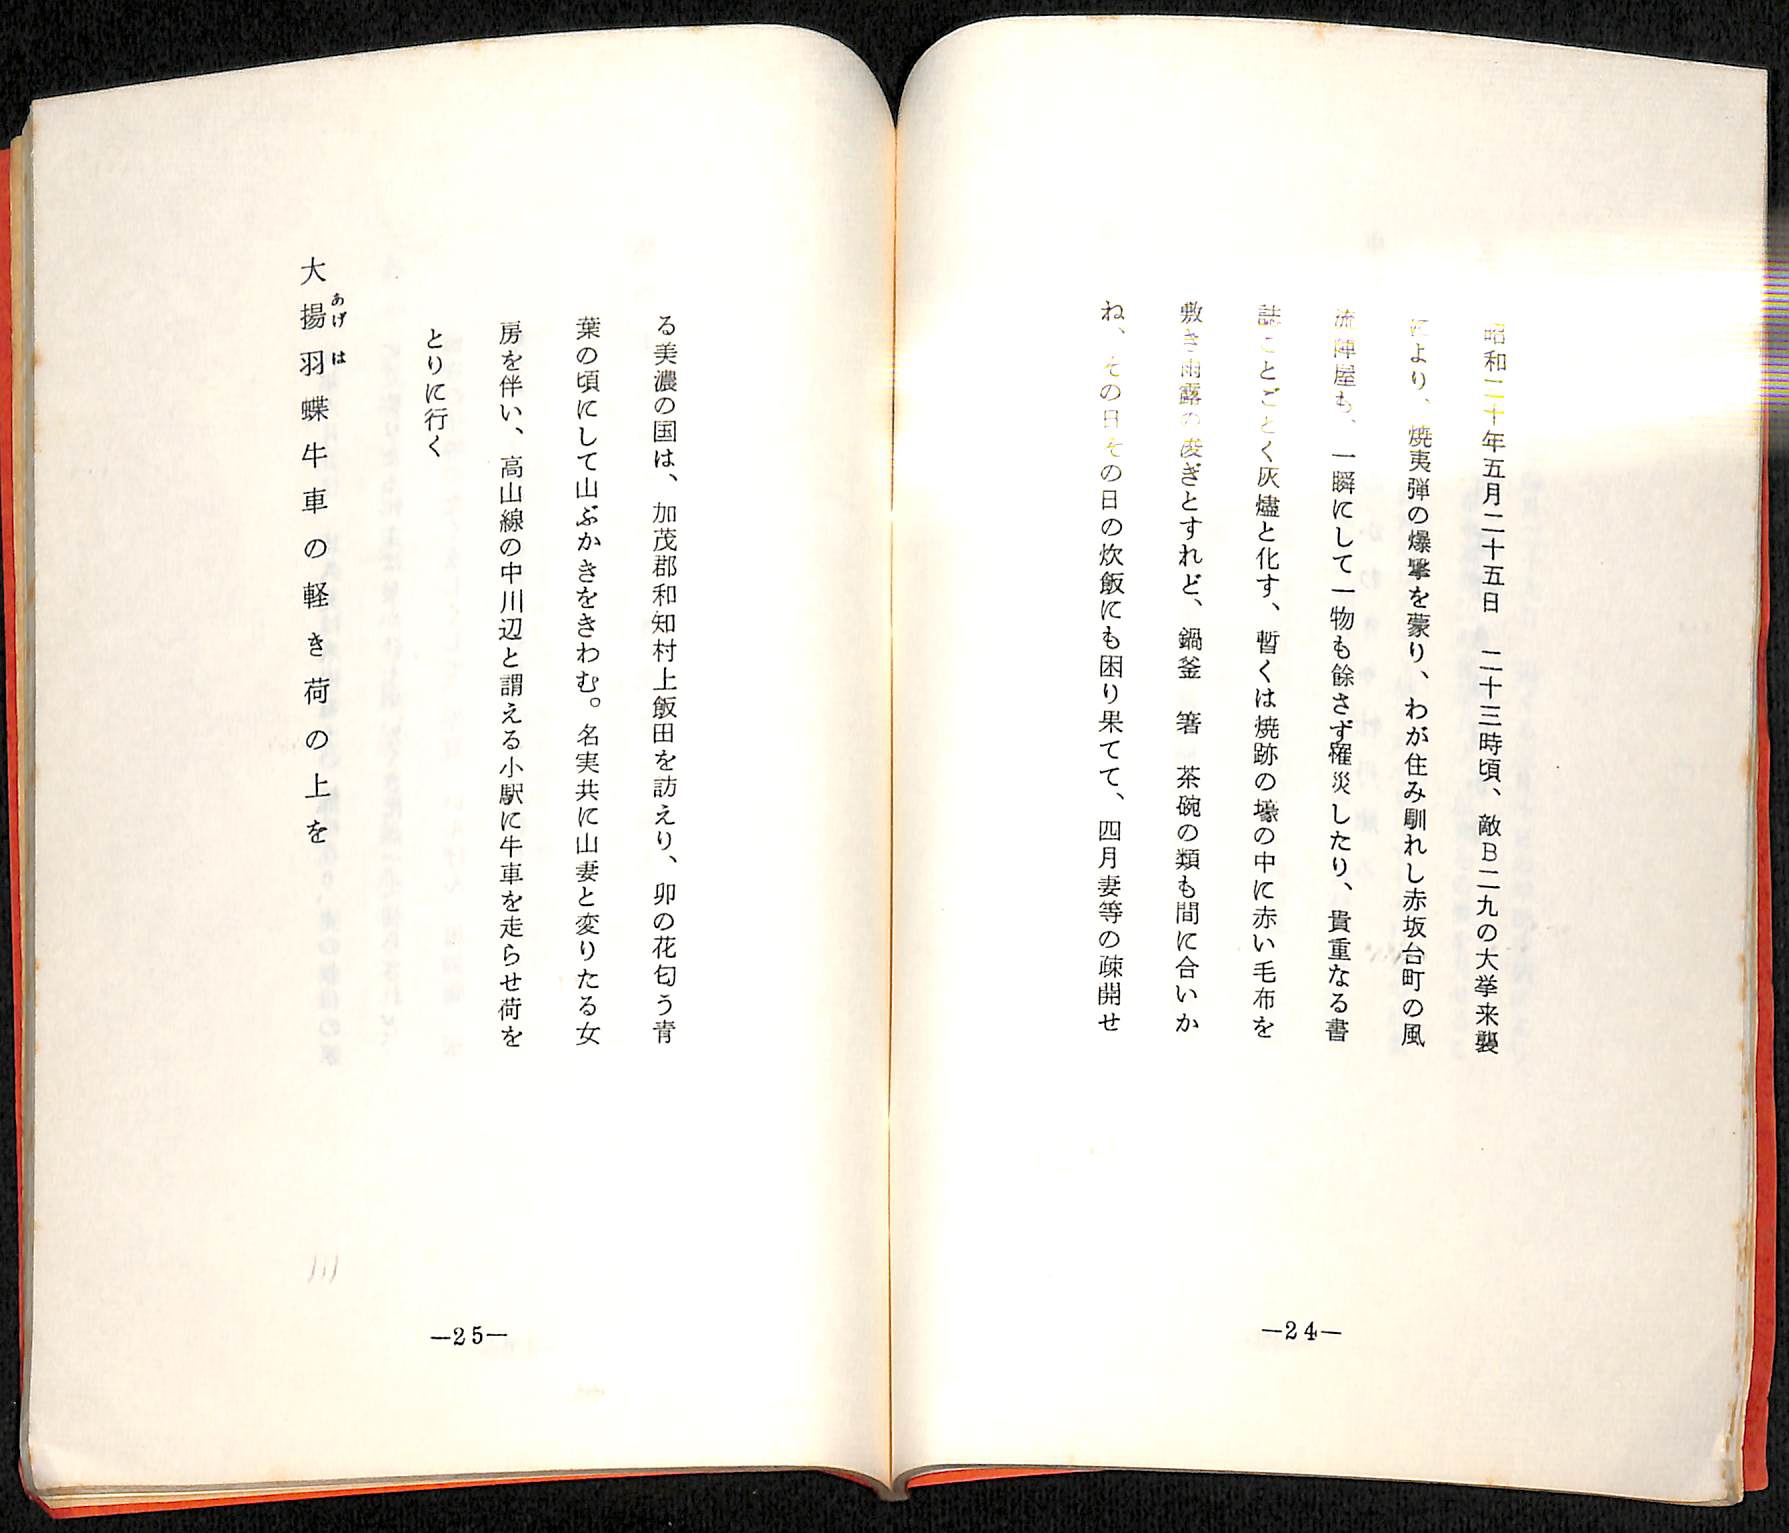 昭和二十年五月二十五日　二十三時頃、敵B二九の大挙来襲
により、焼夷弾の爆撃を蒙り、わが住み馴れし赤坂台町の風
流陣屋も、一瞬にして一物も餘さず罹災したり、貴重なる書
誌ことごとく灰燼と化す、暫くは焼跡の壕の中に赤い毛布を
敷き雨露の凌ぎとすれど、鍋釜　箸　茶碗の類も間に合いか
ね、その日その日の炊飯にも困り果てて、四月妻等の疎開せ
—24—
る美濃の国は、加茂郡和知村上飯田を訪えり、卯の花匂う青
葉の頃にして山ぶかきをきわむ。名実共に山妻と変りたる女
房を伴い、高山線の中川辺と謂える小駅に牛車を走らせ荷を
とりに行く
大揚羽蝶牛車の軽き荷の上を
あげは
—25—